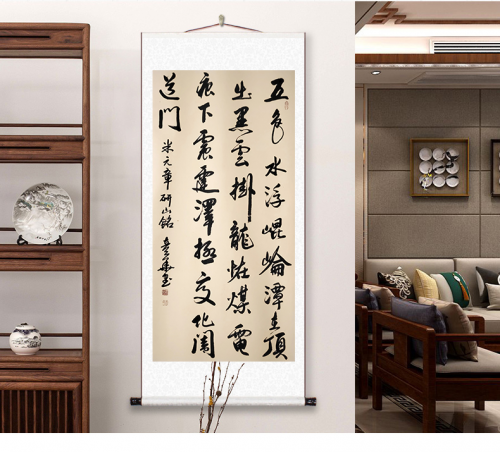 五色水浮崐崘潭在頂
出黑雲掛龍恠爍電
痕下震霆澤極变化闔
道門
米元章研山銘